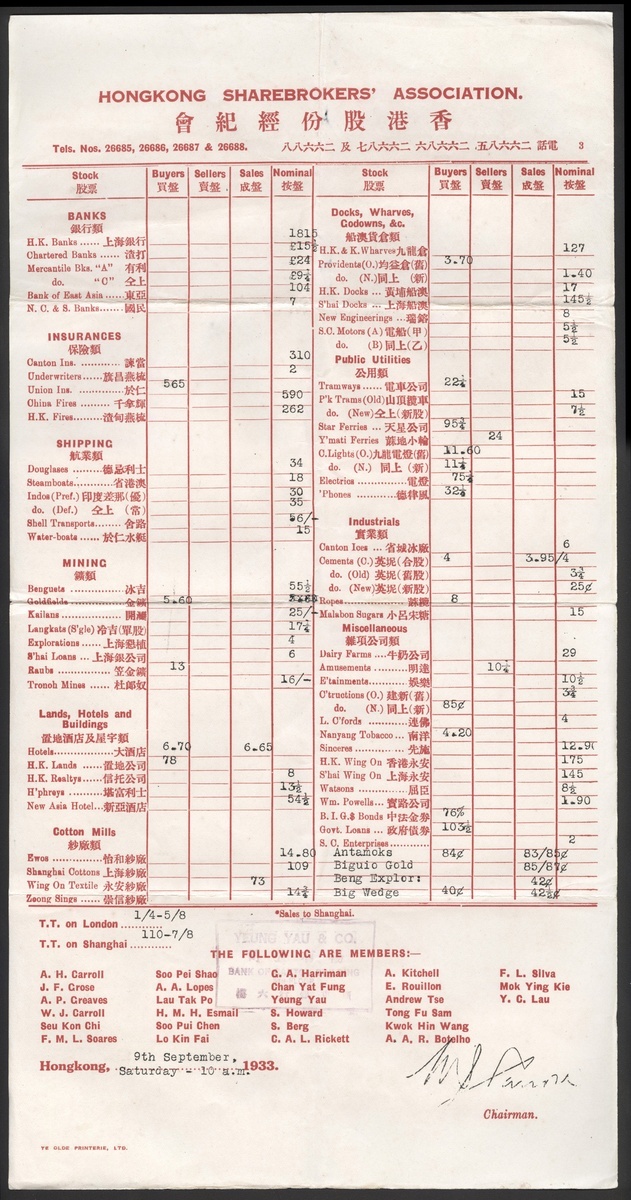 HONGKONG SHAREBROKERS' ASSOCIATION.
會紀經份股港香
Tels. Nos. 26685, 26686, 26687 & 26688. 八八六六二 及 七八六六二 六八六六二 五八六六二 話電 3
Stock Buyers Sellers Sales Nominal
股票 買盤 賣盤 成盤 按盤
BANKS
銀行類
H.K. Banks ...... 上海銀行 1815
Chartered Banks ...... 渣打 £15½
Mercantile Bks. "A" 有利 £24
do. "C" 仝上 £9¼
Bank of East Asia ...... 東亞 104
N. C. & S. Banks ...... 國民 7
INSURANCES
保險類
Canton Ins. ............ 諫當 310
Underwriters ...... 旗昌燕梳 2
Union Ins. ............ 於仁 565
China Fires ............ 千拿輝 590
H.K. Fires ...... 渣甸燕梳 262
SHIPPING
航業類
Douglases ......... 德忌利士 34
Steamboats ......... 省港澳 18
Indos (Pref.) 印度差那 (優) 30
do. (Def.) 仝上 (常) 35
Shell Transports ......... 56/-
Water-boats ...... 於仁水艇 15
MINING
鑛類
Benguets ............ 冰吉 55½
Goldfields ............ 金鑛 5.60
Kailans ............ 開灤 25/-
Langkats (S'gle) 冷吉 (單股) 17½
Explorations ...... 上海懇植 4
S'hai Loans ... 上海銀公司 6
Raubs ............ 笠金鑛 13
Tronoh Mines ...... 杜郎奴 16/-
Lands, Hotels and
Buildings
置地酒店及屋宇類
Hotels ............ 大酒店 6.70 6.65
H.K. Lands ...... 置地公司 78
H.K. Realtys ...... 信托公司 8
H'phreys ...... 堪富利士 13½
New Asia Hotel ... 新亞酒店 54½
Cotton Mills
紗廠類
Ewos ............ 怡和紗廠 14.80
Shanghai Cottons 上海紗廠 109
Wing On Textile 永安紗廠 73
Zoong Sings ...... 崇信紗廠 14¾
Stock Buyers Sellers Sales Nominal
股票 買盤 賣盤 成盤 按盤
Docks, Wharves,
Godowns, &c.
船澳貨倉類
H.K. & K. Wharves 九龍倉 127
Providents (O.) 均益倉 (舊) 3.70
do. (N.) 同上 (新) 1.40
H.K. Docks ... 黃埔船澳 17
S'hai Docks ... 上海船澳 145½
New Engineerings ... 瑞鎔 8
S.C. Motors (A) 電船 (甲) 5½
do. (B) 同上 (乙) 5½
Public Utilities
公用類
Tramways ...... 電車公司 22¼
P'k Trams (Old) 山頂纜車 15
do. (New) 仝上 (新股) 7½
Star Ferries ... 天星公司 95¾
Y'mati Ferries 蔴地小輪 24
C. Lights (O.) 九龍電燈 (舊) 11.60
do. (N.) 同上 (新) 11¼
Electrics ............ 電燈 75¼
'Phones ............ 德律風 32¼
Industrials
實業類
Canton Ices ... 省城冰廠 6
Cements (C.) 英坭 (合股) 4 3.95/4
do. (Old) 英坭 (舊股) 3¾
do. (New) 英坭 (新股) 25¢
Ropes ............ 8
Malabon Sugars 小呂宋糖 15
Miscellaneous
雜項公司類
Dairy Farms ... 牛奶公司 29
Amusements ......... 明達 10¼
E'tainments ......... 娛樂 10½
C'tructions (O.) 建新 (舊) 3¾
do. (N.) 同上 (新) 85¢
L. C'fords ......... 連佛 4
Nanyang Tobacco ... 南洋 4.20
Sinceres ............ 先施 12.90
H.K. Wing On 香港永安 175
S'hai Wing On 上海永安 145
Watsons ............ 屈臣 8½
Wm. Powells ... 寶路公司 1.90
B. I. G. $ Bonds 中法金券 76%
Govt. Loans ... 政府債券 103½
S. C. Enterprises ............ 2
Antamoks 84¢ 83/85¢
Biguio Gold 85/87¢
Beng Explor: 42¢
Big Wedge 40¢ 42½¢
T.T. on London ........... 1/4-5/8
T.T. on Shanghai ........... 110-7/8
*Sales to Shanghai.
YEUNG YAU & CO.
THE FOLLOWING ARE MEMBERS:—
A. H. Carroll Soo Pei Shao C. A. Harriman A. Kitchell F. L. Silva
J. F. Grose A. A. Lopes Chan Yat Fung E. Rouillon Mok Ying Kie
A. P. Greaves Lau Tak Po Yeung Yau Andrew Tse Y. C. Lau
W. J. Carroll H. M. H. Esmail S. Howard Tong Fu Sam
Seu Kon Chi Soo Pui Chen S. Berg Kwok Hin Wang
F. M. L. Soares Lo Kin Fai C. A. L. Rickett A. A. R. Botelho
Hongkong, 9th September, 1933.
Saturday - 10 a.m.
Chairman.
YE OLDE PRINTERIE, LTD.